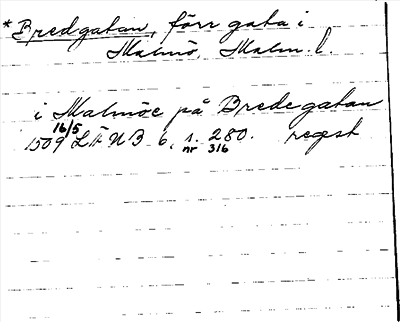 *Bredgatan, förr gata i
Malmö, Malm. l.
i Malmöe på Bredegatan
1509 16/5 LÄUB 6, s. 280. regest
nr 316